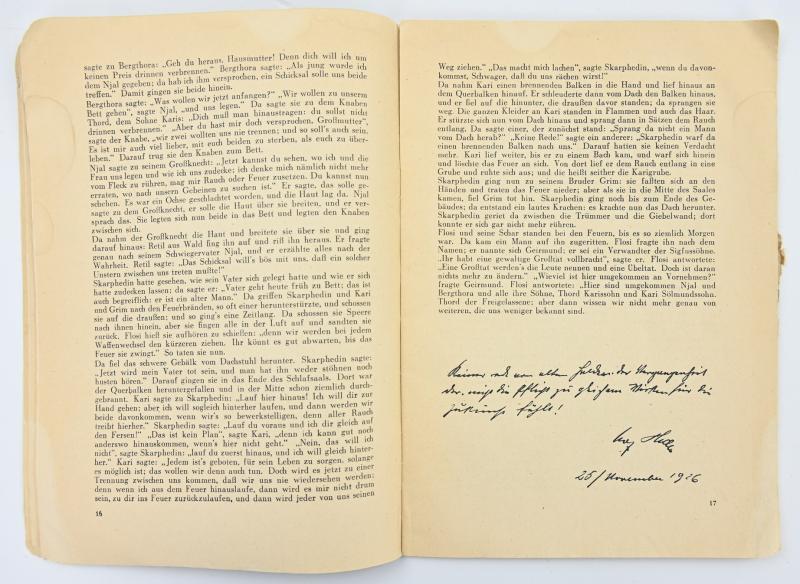 sagte zu Bergthora: „Geh du heraus, Hausmutter! Denn dich will ich um
keinen Preis drinnen verbrennen.“ Bergthora sagte: „Als jung wurde ich
dem Njal gegeben; da hab ich ihm versprochen, ein Schicksal solle uns beide
treffen.“ Damit gingen sie beide hinein.
Bergthora sagte: „Was wollen wir jetzt anfangen?“ „Wir wollen zu unserm
Bett gehen“, sagte Njal, „und uns legen.“ Da sagte sie zu dem Knaben
Thord, dem Sohne Karis: „Dich muß man hinaustragen: du sollst nicht
drinnen verbrennen.“ „Aber du hast mir doch versprochen, Großmutter“,
sagte der Knabe, „wir zwei wollten uns nie trennen; und so soll's auch sein.
Es ist mir auch viel lieber, mit euch beiden zu sterben, als euch zu über-
leben.“ Darauf trug sie den Knaben zum Bett.
Njal sagte zu seinem Großknecht: „Jetzt kannst du sehen, wo ich und die
Frau uns legen und wie ich uns zudecke; ich denke mich nämlich nicht mehr
vom Fleck zu rühren, mag mir Rauch oder Feuer zusetzen. Du kannst nun
erraten, wo nach unsern Gebeinen zu suchen ist.“ Er sagte, das solle ge-
schehen. Es war ein Ochse geschlachtet worden, und die Haut lag da. Njal
sagte zu dem Großknecht, er solle die Haut über sie breiten, und er ver-
sprach das. Sie legten sich nun beide in das Bett und legten den Knaben
zwischen sich.
Da nahm der Großknecht die Haut und breitete sie über sie und ging
darauf hinaus: Retil aus Wald fing ihn auf und riß ihn heraus. Er fragte
genau nach seinem Schwiegervater Njal, und er erzählte alles nach der
Wahrheit. Retil sagte: „Das Schicksal will's bös mit uns, daß ein solcher
Unstern zwischen uns treten mußte!“
Skarphedin hatte gesehen, wie sein Vater sich gelegt hatte und wie er sich
hatte zudecken lassen; da sagte er: „Vater geht heute früh zu Bett; das ist
auch begreiflich: er ist ein alter Mann.“ Da griffen Skarphedin und Kari
und Grim nach den Feuerbränden, so oft einer herunterstürzte, und schossen
sie auf die draußen: und so ging's eine Zeitlang. Da schossen sie Speere
nach ihnen hinein, aber sie fingen alle in der Luft auf und sandten sie
zurück. Flosi hieß sie aufhören zu schießen: „denn wir werden bei jedem
Waffenwechsel den kürzeren ziehen. Ihr könnt es gut abwarten, bis das
Feuer sie zwingt.“ So taten sie nun.
Da fiel das schwere Gebälk vom Dachstuhl herunter. Skarphedin sagte:
„Jetzt wird mein Vater tot sein, und man hat ihn weder stöhnen noch
husten hören.“ Darauf gingen sie in das Ende des Schlafsaals. Dort war
der Querbalken heruntergefallen und in der Mitte schon ziemlich durch-
gebrannt. Kari sagte zu Skarphedin: „Lauf hier hinaus! Ich will dir zur
Hand gehen; aber ich will sogleich hinterher laufen, und dann werden wir
beide davonkommen, wenn wir's so bewerkstelligen, denn aller Rauch
treibt hierher.“ Skarphedin sagte: „Lauf du voraus und ich dir gleich auf
den Fersen!“ „Das ist kein Plan“, sagte Kari, „denn ich kann gut noch
anderswo hinauskommen, wenn's hier nicht geht.“ „Nein, das will ich
nicht“, sagte Skarphedin: „lauf du zuerst hinaus, und ich will gleich hinter-
her.“ Kari sagte: „Jedem ist's geboten, für sein Leben zu sorgen, solange
es möglich ist; das wollen wir denn auch tun. Doch wird es jetzt zu einer
Trennung zwischen uns kommen, daß wir uns nie wiedersehen werden:
denn wenn ich aus dem Feuer hinauslaufe, dann wird es mir nicht drum
sein, zu dir ins Feuer zurückzulaufen, und dann wird jeder von uns seinen
16
Weg ziehen.“ „Das macht mich lachen“, sagte Skarphedin, „wenn du davon-
kommst, Schwager, daß du uns rächen wirst!“
Da nahm Kari einen brennenden Balken in die Hand und lief hinaus an
dem Querbalken hinauf. Er schleuderte dann vom Dach den Balken hinaus,
und er fiel auf die hinunter, die draußen davor standen; da sprangen sie
weg. Die ganzen Kleider an Kari standen in Flammen und auch das Haar.
Er stürzte sich nun vom Dach hinaus und sprang dann in Sätzen dem Rauch
entlang. Da sagte einer, der zunächst stand: „Sprang da nicht ein Mann
vom Dach herab?“ „Keine Rede!“ sagte ein anderer: „Skarphedin warf da
einen brennenden Balken nach uns.“ Darauf hatten sie keinen Verdacht
mehr. Kari lief weiter, bis er zu einem Bach kam, und warf sich hinein
und löschte das Feuer an sich. Von dort lief er dem Rauch entlang in eine
Grube und ruhte sich aus; und die heißt seither die Karigrube.
Skarphedin ging nun zu seinem Bruder Grim: sie faßten sich an den
Händen und traten das Feuer nieder; aber als sie in die Mitte des Saales
kamen, fiel Grim tot hin. Skarphedin ging noch bis zum Ende des Ge-
bäudes; da entstand ein lautes Krachen: es krachte nun das Dach herunter.
Skarphedin geriet da zwischen die Trümmer und die Giebelwand; dort
konnte er sich gar nicht mehr rühren.
Flosi und seine Schar standen bei den Feuern, bis es so ziemlich Morgen
war. Da kam ein Mann auf sie zugeritten. Flosi fragte ihn nach dem
Namen; er nannte sich Geirmund; er sei ein Verwandter der Sigfussöhne.
„Ihr habt eine gewaltige Großtat vollbracht“, sagte er. Flosi antwortete:
„Eine Großtat werden's die Leute nennen und eine Übeltat. Doch ist daran
nichts mehr zu ändern.“ „Wieviel ist hier umgekommen an Vornehmen?“
fragte Geirmund. Flosi antwortete: „Hier sind umgekommen Njal und
Bergthora und alle ihre Söhne, Thord Karissohn und Kari Sölmundssohn,
Thord der Freigelassene: aber dann wissen wir nicht mehr genau von
weiteren, die uns weniger bekannt sind.
Keiner red von alten Helden der Vergangenheit
der nicht die Pflicht zu gleichem Wirken für die
Zukunft fühlt!
25/November 1926
17